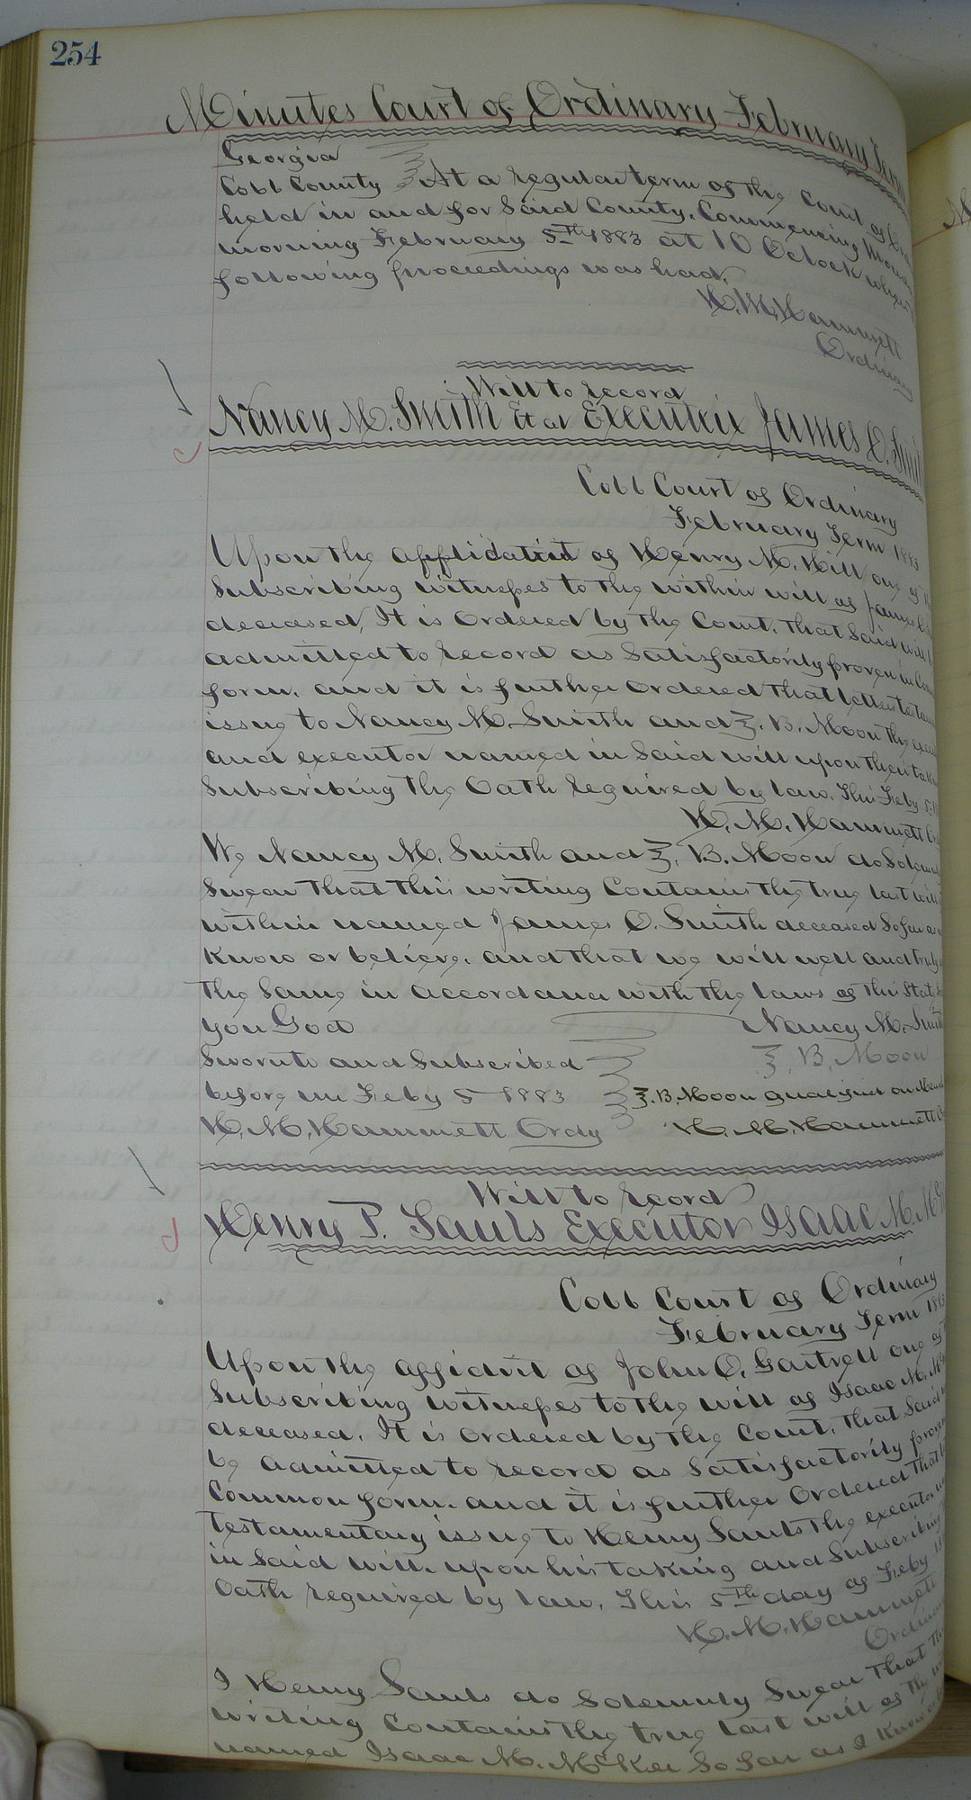 254
Minutes Court of Ordinary February Term
Georgia
Cobb County } At a regular term of the Court of Ord
held in and for Said County, Commencing Monday
morning February 5th 1883 at 10 Oclock when
following proceedings was had.
H. M. Hammett
Ordinary
Will to record
Nancy M. Smith et al Executrix James O. Smit
Cobb Court of Ordinary
February Term 1883
Upon the affidavit of Henry M. Hill one of
Subscribing witnesses to the within will of James
deceased, It is Ordered by the Court, that Said will
admitted to record as Satisfactorily proven in Com
form. and it is further Ordered that letters
issue to Nancy M. Smith and Z. B. Moon the
and executor named in Said will upon their
Subscribing the Oath required by law. This Feby 5
H. M. Hammett
We Nancy M. Smith and Z. B. Moon do Solem
Swear that this writing Contains the true last will
within named James O. Smith deceased So far as
know or believe. and that we will well and truly
the Same in accordance with the laws of this State
you God
Nancy M. Smith
Sworn to and Subscribed
Z. B. Moon
before me Feby 5 1883
Z. B. Moon qualified on
H. M. Hammett Ordy
H. M. Hammett
Will to record
Henry P. Sauls Executor Isaac M. Mc
Cobb Court of Ordinary
February Term 188
Upon the affidvit of John O. Gartrell one of
Subscribing witnesses to the will of Isaac M. Mc
deceased. It is Ordered by the Court, that Said
be admitted to record as Satisfactorily proven
Common form. and it is further Ordered that
testamentary issue to Henry Sauls the executor
in Said will. upon his taking and Subscribing
Oath required by law. This 5th day of Feby
H. M. Hammett
Ordinary
I Henry Sauls do Solemnly Swear that
writing Contains the true last will of the
named Isaac M. McKee So far as I know